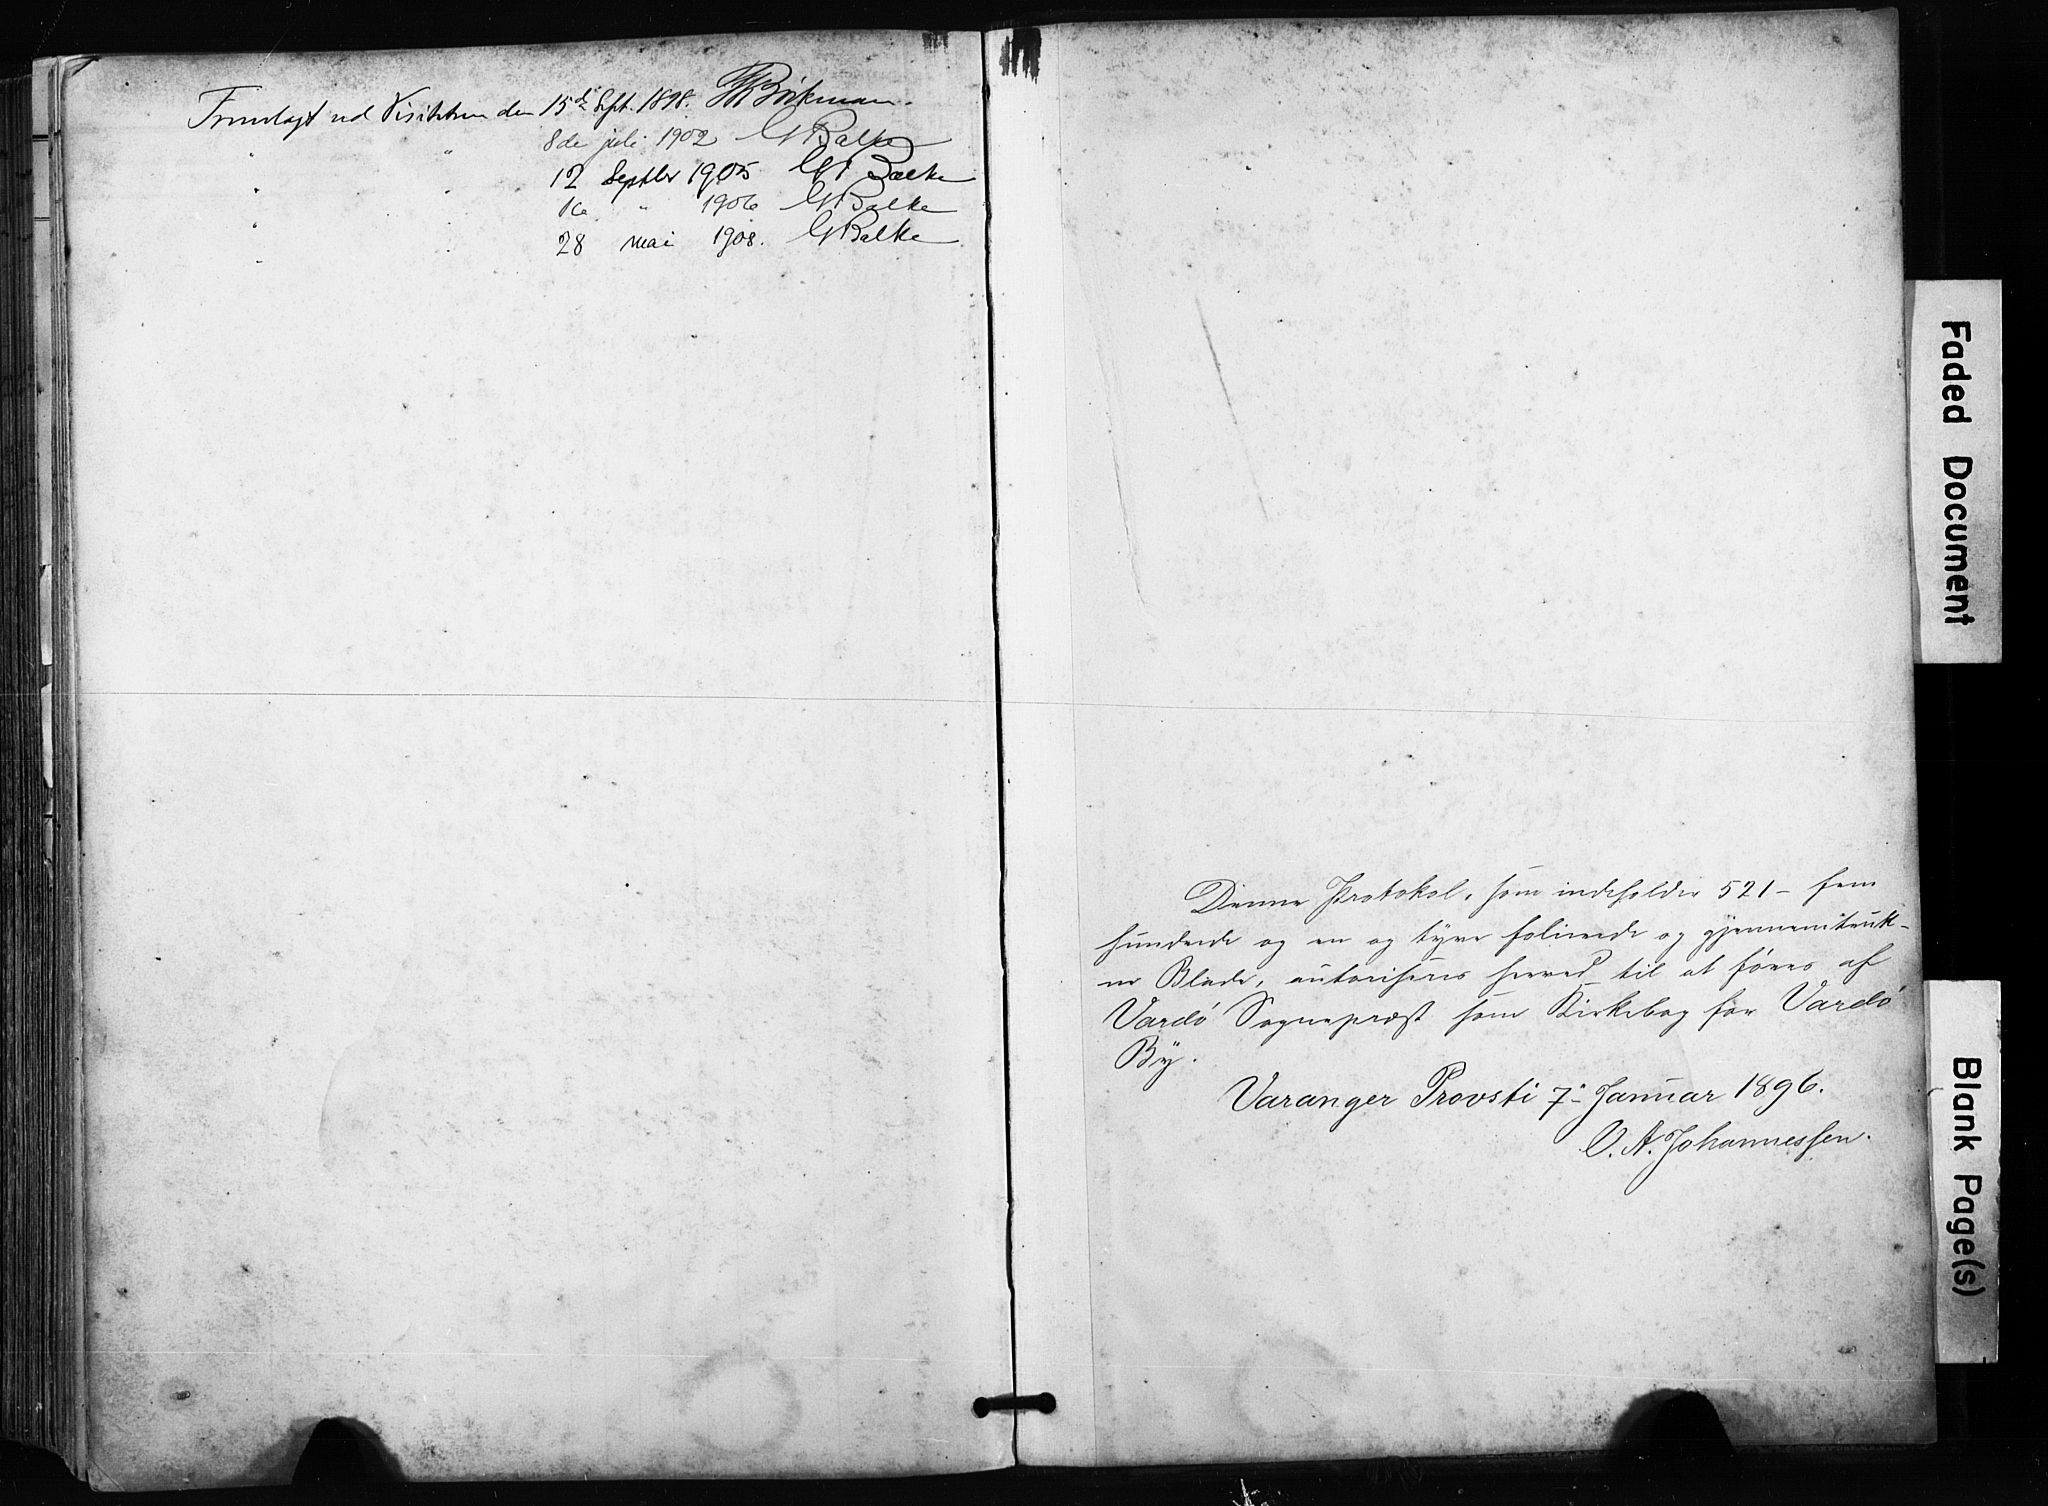 Fremlagt ved Visitatsen den 15de Sept. 1898. Bøckman.
" " 8de juli 1902 G Balke
" " 12 Septbr 1905 G Balke
" " 16 " 1906 G Balke
" " 28 mai 1908. G Balke
Denne Protokol, som indeholder 521 – fem
hundrede og en og tyve folierede og gjennemtruk-
ne Blade, autoriseres herved til at føres af
Vardø Sognepræst som Kirkebog for Vardø
By.
Varanger Provsti 7- Januar 1896.
O. A. Johannessen.
Faded Document
Blank Page(s)